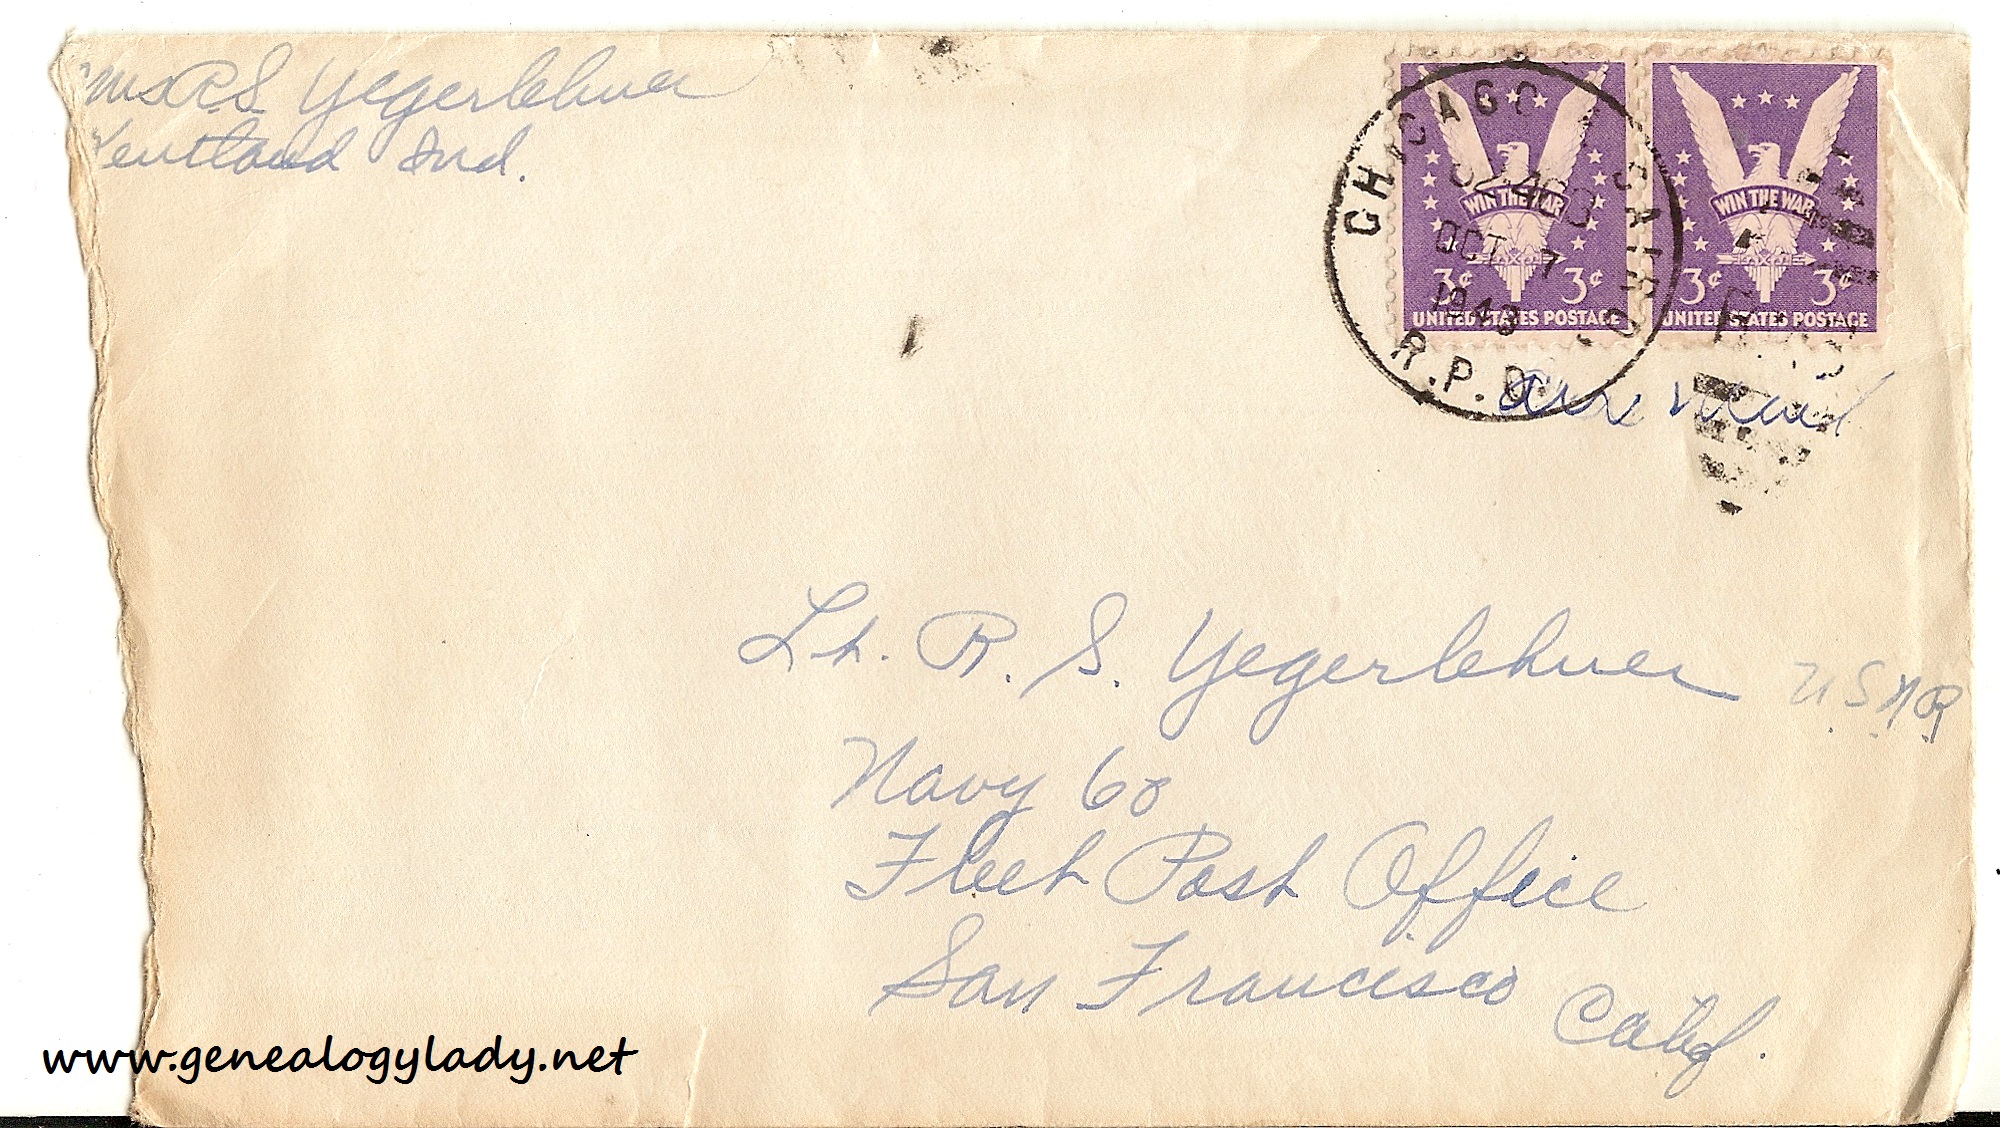 Mrs R.S. Yegerlehner
Kentland Ind.
CHICAGO
OCT 7
1943
R.P.O.
WIN THE WAR
3¢ 3¢
UNITED STATES POSTAGE
WIN THE WAR
3¢ 3¢
UNITED STATES POSTAGE
Air Mail
Lt. R. S. Yegerlehner U.S.N.R.
Navy 60
Fleet Post Office
San Francisco
Calif.
www.genealogylady.net